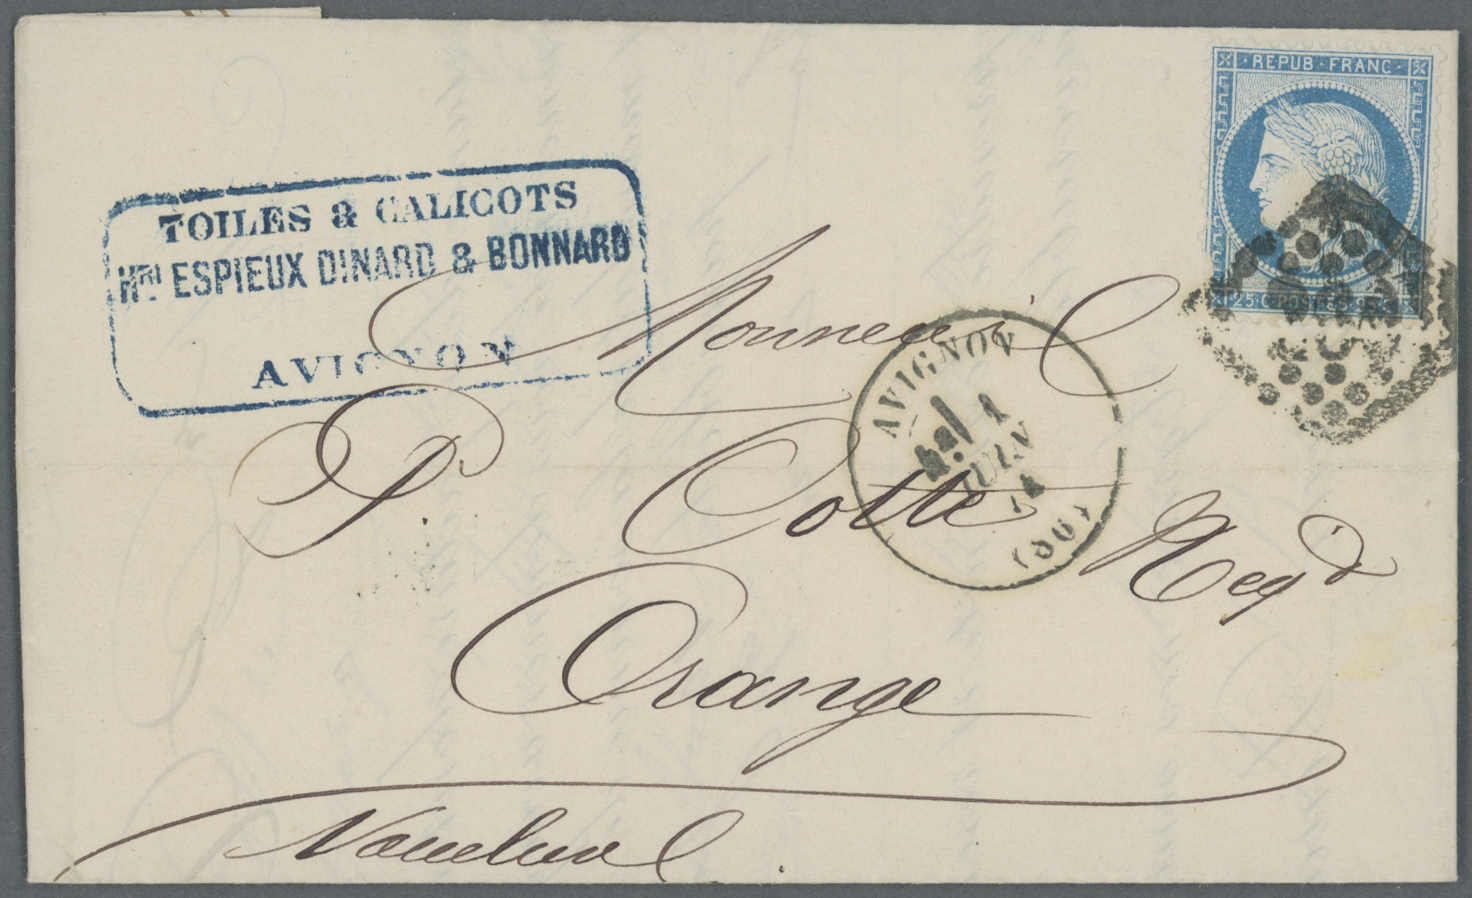 REPUB · FRANC
TOILES & CALICOTS
Hri ESPIEUX DINARD & BONNARD
AVIGNON
25 · C · POSTES
Monsieur
AVIGNON
1
JUIN
74
(86)
P. Cotte Negt
Orange
Vaucluse